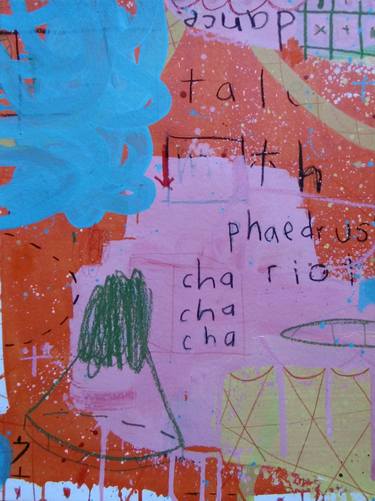 dance
tal
th
phaedrus
cha riot
cha
cha